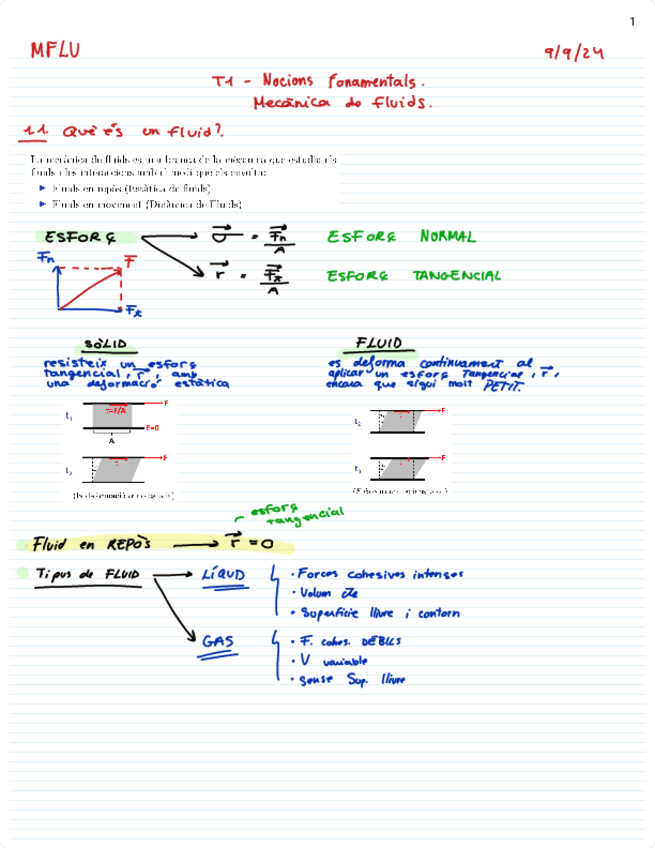 1
MFLU 9/9/24
T1 - Nocions fonamentals.
Mecànica de fluids.
1.1. Què és un fluid?.
La mecànica de fluids es una branca de la mecanica que estudia els
fluids i les interaccions amb el medi que els envolta:
Fluids en repòs (Estàtica de fluids)
Fluids en moviment (Dinàmica de Fluids)
ESFORÇ σ = Fn/A ESFORÇ NORMAL
Fn F
τ = Ft/A ESFORÇ TANGENCIAL
Ft
SÒLID
resisteix un esforç
tangencial, τ, amb
una deformació estàtica
t1 τ=F/A F
F=0
A
t2 F
FLUID
es deforma continuament al
aplicar un esforç Tangencial, τ,
encara que sigui molt PETIT.
t2 F
t3 F
esforç
tangencial
Fluid en REPÒS τ = 0
Tipus de FLUID LÍQUD
· Forces cohesives intenses
· Volum cte
· Superfície lliure i contorn
GAS
· F. cohes. DÈBILS
· V variable
· Sense Sup. lliure